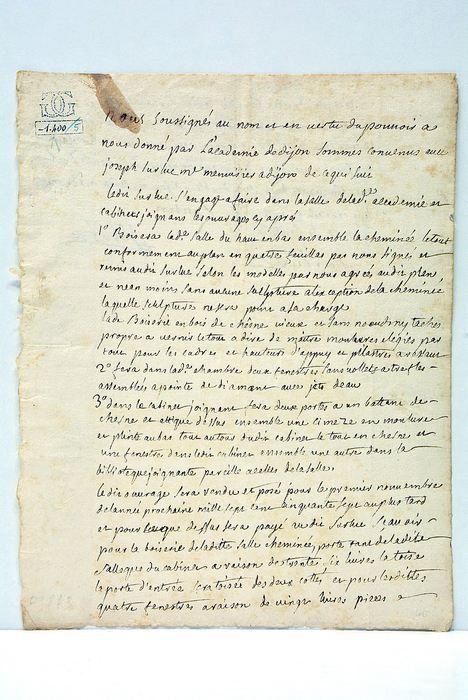 -1.400/5
Nous soussignés au nom et en vertu du pouvoir a
nous donné par L'academie de dijon sommes convenus avec
joseph surlue mᵉ menuisiers a dijon de ce qui suit
ledit surlue s'engage a faire dans la salle de lad. academie et
cabinet joignans les ouvrages cy apres
1° Boisera lad. salle du haut en bas ensemble la cheminée le tout
conformement au plan en quatre feuilles par nous signés et
remis audit surlue selon les modelles par nous agrees audit plan
et neanmoins sans aucune sculpture a l'exception de la cheminée
laquelle sculpture ne sera point a sa charge
lade Boisrie en bois de chesne vieux et sans noeuds ny taches
propre a vernis le tout a dire de maitre moulures elegies par
tout pour les cadres et hauteurs d'appuy et pilastres
2° fera dans lad. chambre deux fenestres sans volets
assemblées a pointe de diamant avec jets deau
3° dans le cabinet joignant fera deux portes a un battant de
chesne et attique dessus ensemble une cimeze en moulure
et plinte au bas tout autour dudit cabinet le tout en chesne et
une fenestre dans ledit cabinet ensemble une autre dans la
biblioteque joignante pareille a celles de la salle.
ledit ouvrage sera rendu et posé pour le premier novembre
de l'année prochaine mille sept cent cinquante sept au plus tard
et pour ce que dessus sera payé audit surlue scavoir
pour la boiserie de laditte salle cheminée, porte tant de ladite
salle que du cabinet a raison de trente six livres la toise
la porte d'entrée sera toisée des deux cotés et pour lesdittes
quatre fenestres a raison de vingt livres piece